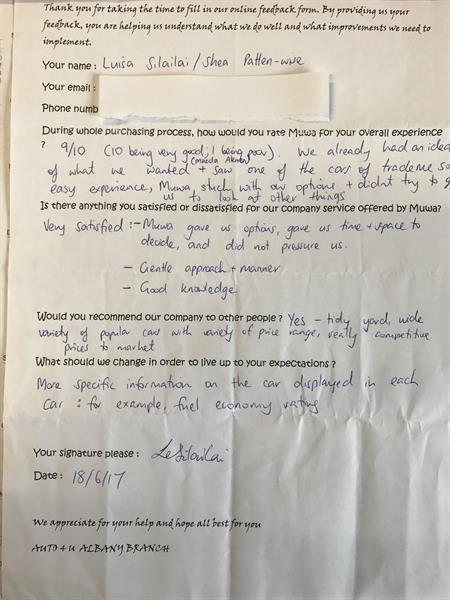 Thank you for taking the time to fill in our online feedback form. By providing us your
feedback, you are helping us understand what we do well and what improvements we need to
implement.
Your name : Luisa Silailai / Shea Patten-wse
Your email :
Phone numb
During whole purchasing process, how would you rate Muwa for your overall experience
? 9/10 (10 being very good, 1 being poor). We already had an idea
of what we wanted (mazda Atenza) + saw one of the cars of trademe so
easy experience, Muwa, stuck with our options + didnt try to g
us to look at other things
Is there anything you satisfied or dissatisfied for our company service offered by Muwa?
Very satisfied :- Muwa gave us options, gave us time + space to
decide, and did not pressure us.
- Gentle approach + manner
- Good knowledge
Would you recommend our company to other people ? Yes - tidy yard, wide
variety of popular cars with variety of price range, really competitive
prices to market
What should we change in order to live up to your expectations ?
More specific information on the car displayed in each
car : for example, fuel economy rating
Your signature please : LeSilailai
Date : 18/6/17
We appreciate for your help and hope all best for you
AUTO 4 U ALBANY BRANCH